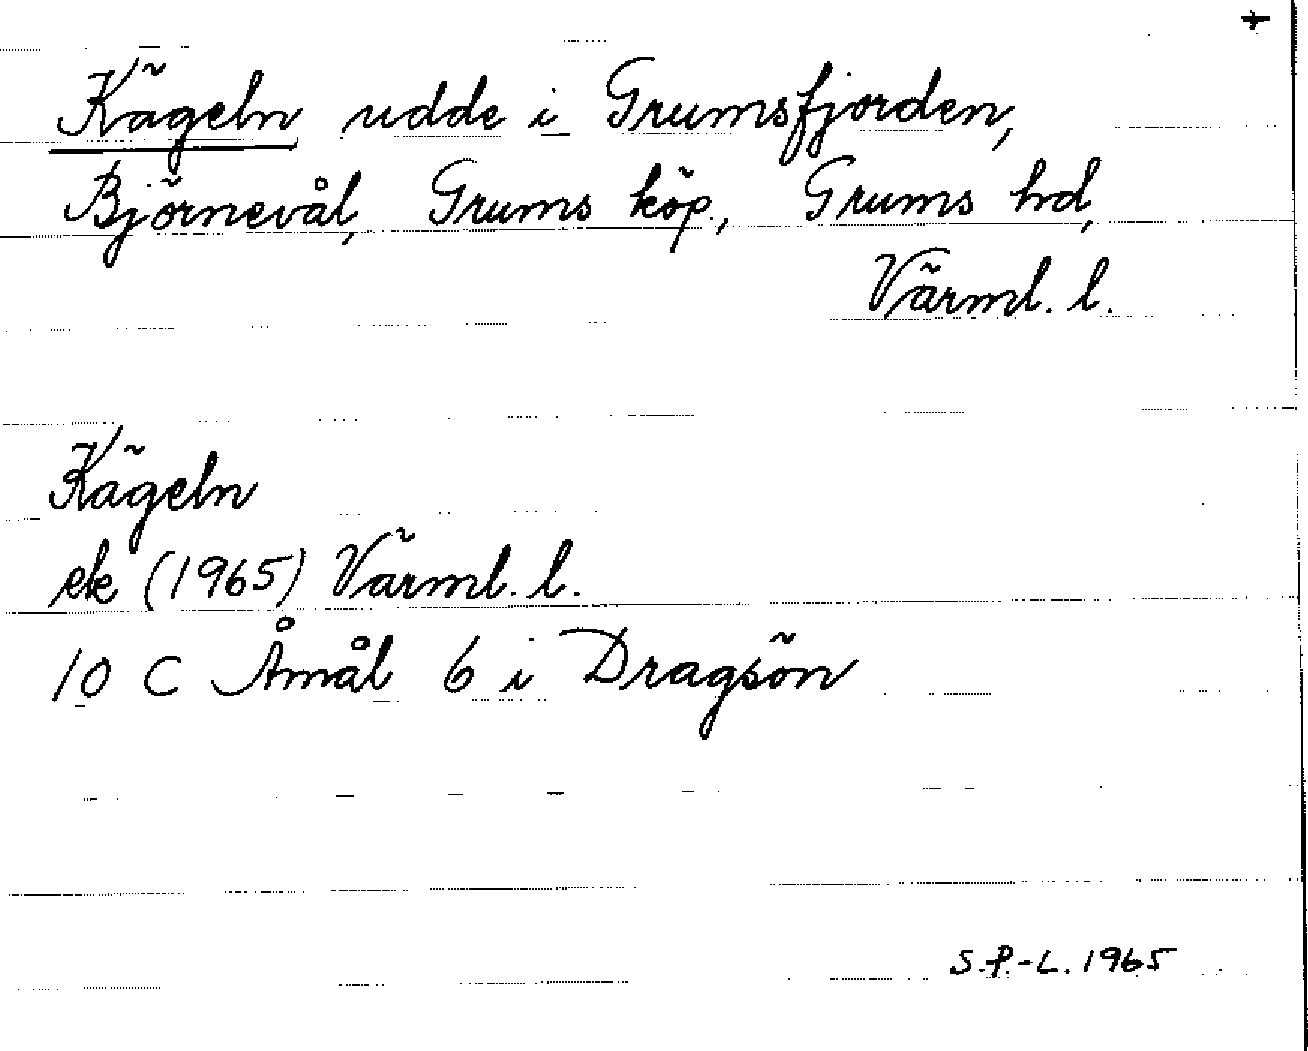 +
Kägeln udde i Grumsfjorden,
Björnevål, Grums köp., Grums hd,
Värml. l.
Kägeln
ek (1965) Värml. l.
10 C Åmål 6 i Dragsön
S.P.-L. 1965